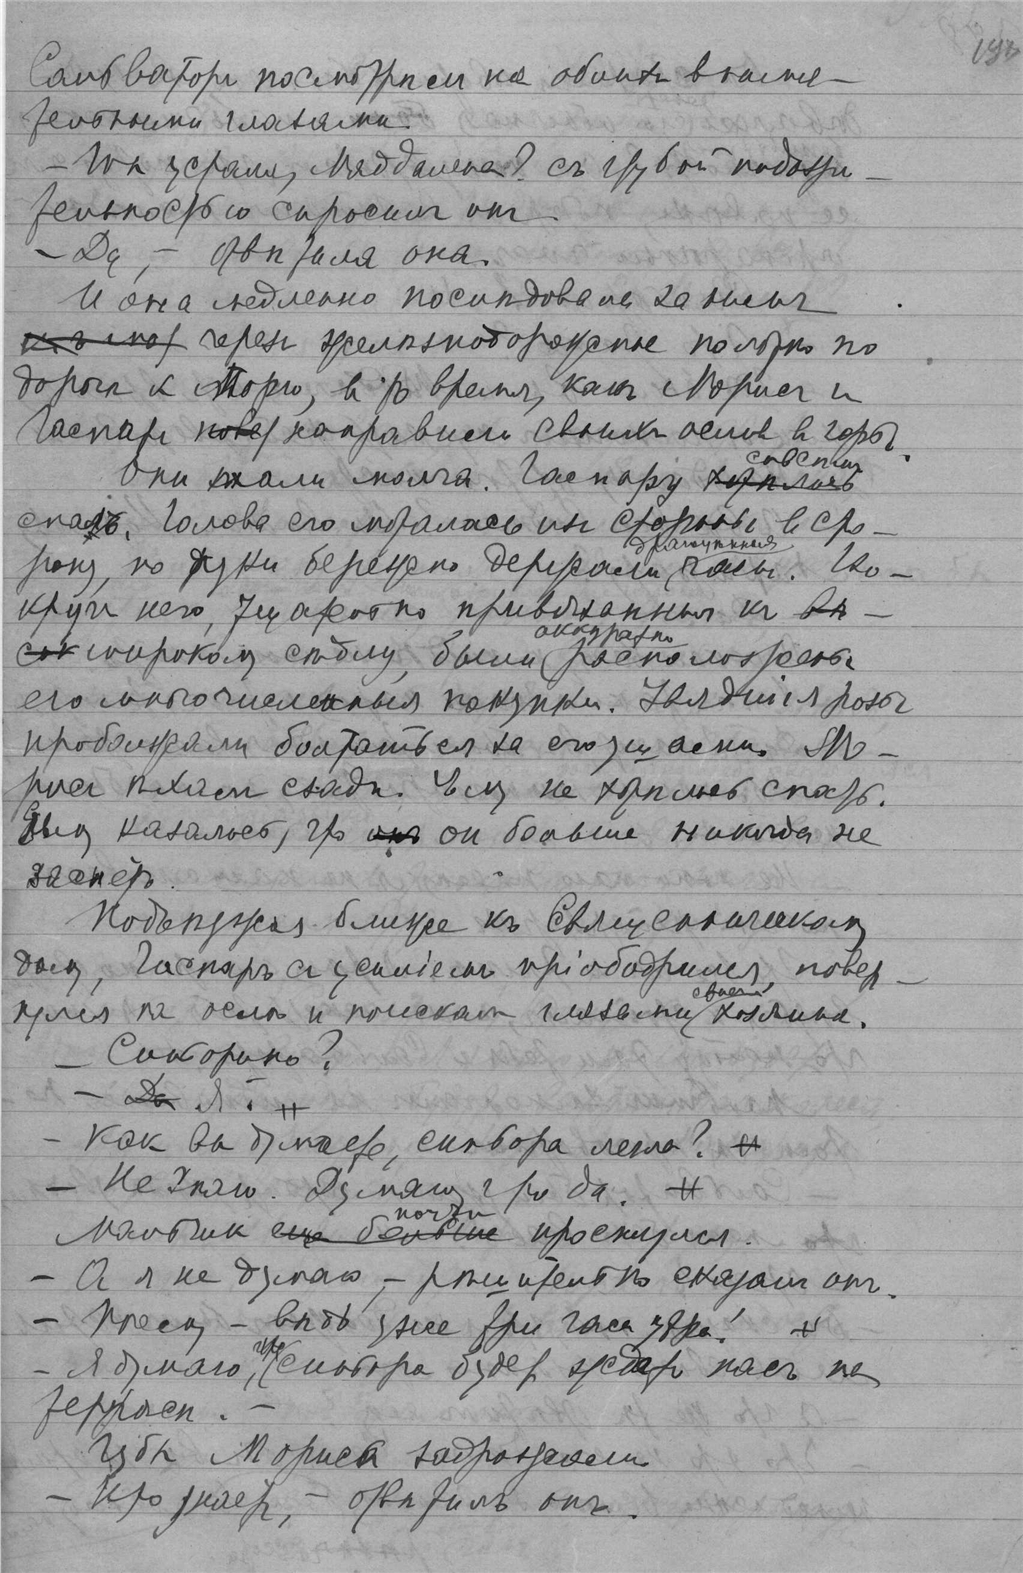 Сальваторъ посмотрѣлъ на обоихъ внима-
тельными глазами.
— Ты устала, Маддалена? съ грубой подозри-
тельностью спросилъ онъ.
— Да, — отвѣтила она.
И она медленно послѣдовала за нимъ
черезъ желѣзнодорожное полотно по
дорогѣ к морю, в то время, какъ Морисъ и
Гаспаръ повер направили своихъ ословъ в горы.
Они ѣхали молча. Гаспару хотѣлось совсѣмъ
спалъ. Голова его моталась изъ стороны в сто-
рону, но руки бережно держали драгоцѣнные часы. Во-
кругъ него, тщательно привязанныя къ вы-
сок широкому сѣдлу, были аккуратно расположены
его многочисленныя покупки. Увядшія розы
продолжали болтаться за его ушами. Мо-
рисъ ѣхалъ сзади. Ему не хотѣлось спать.
Ему казалось, что онъ он больше никогда не
заснётъ.
Подъѣзжая ближе къ Священническому
дому, Гаспаръ съ усиліемъ пріободрился, повер-
нулся на ослѣ и поискалъ глазами своего хозяина.
— Синьорино?
— Да Я.
— Как вы думаете, синьора легла?
— Не знаю. Думаю, что да.
Мальчик еще больше почти проснулся.
— А я не думаю, — рѣшительно сказалъ онъ.
— Почему — вѣдь уже три часа утра!
— Я думаю, что синьора будетъ ждать насъ на
террасѣ. —
Губы Мориса задрожали.
— Кто знаетъ, — отвѣтилъ онъ.